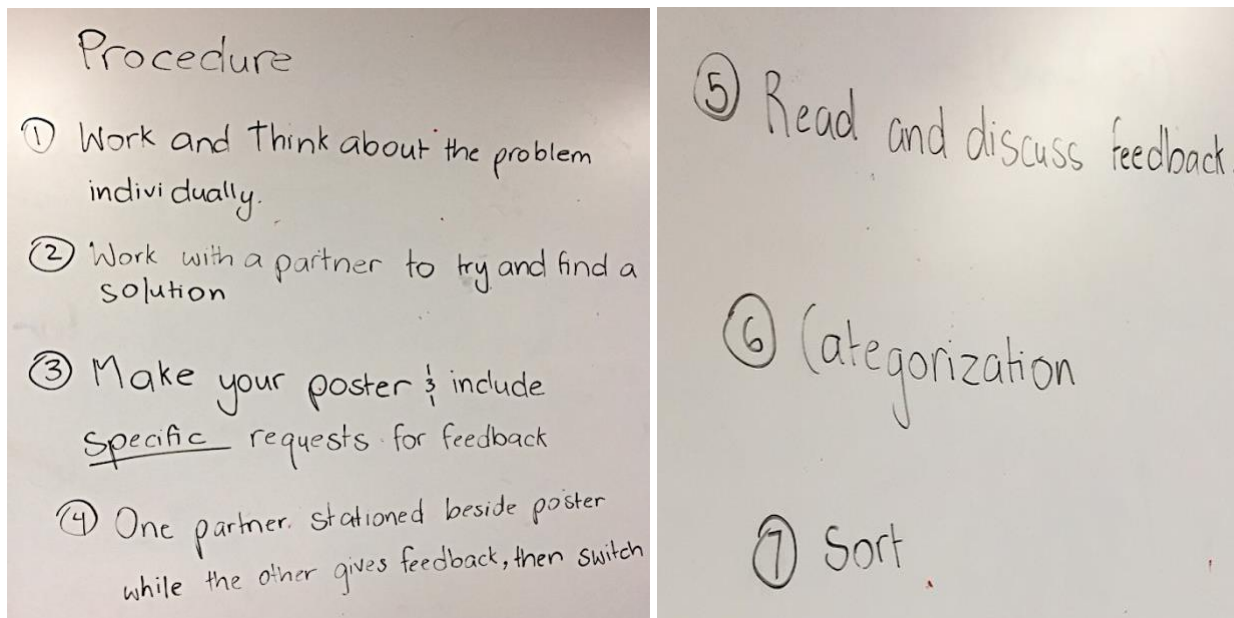 Procedure
① Work and Think about the problem
individually.
② Work with a partner to try and find a
solution
③ Make your poster & include
specific requests for feedback
④ One partner stationed beside poster
while the other gives feedback, then switch
⑤ Read and discuss feedback.
⑥ Categorization
⑦ Sort